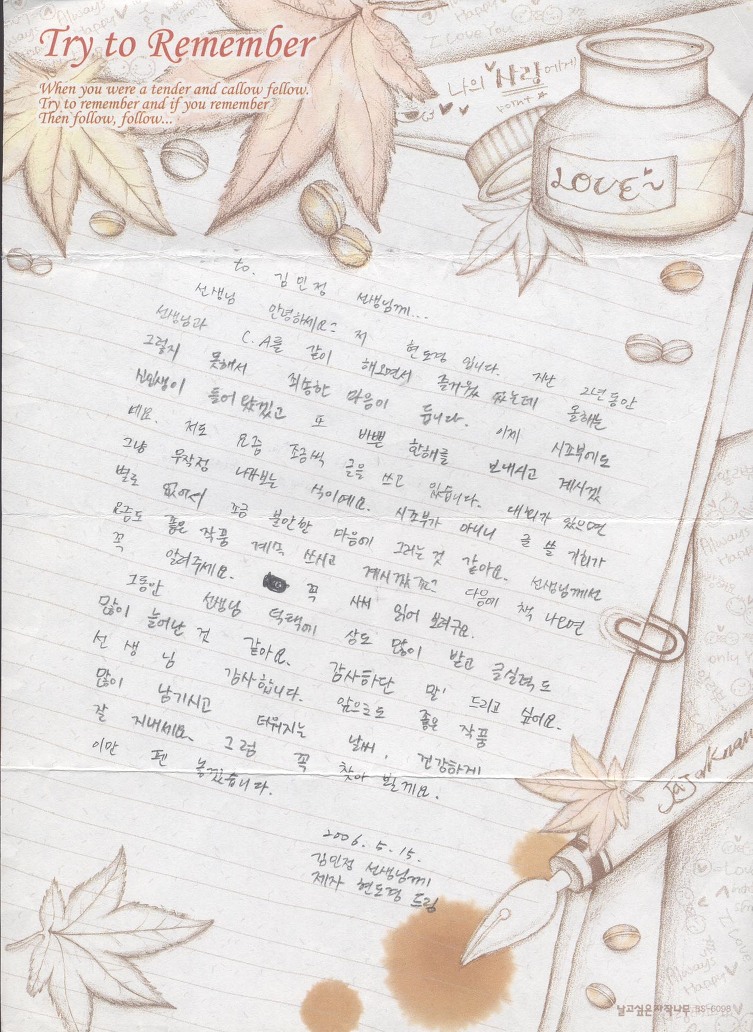 Try to Remember
When you were a tender and callow fellow.
Try to remember and if you remember
Then follow, follow...
나의 사랑에게
point
LOVE
to. 김민정 선생님께...
선생님 안녕하세요? 저 현도경 입니다. 지난 2년동안
선생님과 C.A를 같이 해오면서 즐거웠 었는데 올해는
그렇지 못해서 죄송한 마음이 듭니다. 이제 시조부에도
신입생이 들어 왔겠고 또 바쁜 한해를 보내시고 계시겠
네요. 저도 요즘 조금씩 글을 쓰고 있습니다. 대회가 있으면
그냥 무작정 나가보는 식이예요. 시조부가 아니니 글 쓸 기회가
별로 없어서 조금 불안한 마음에 그러는 것 같아요. 선생님께선
요즘도 좋은 작품 계속 쓰시고 계시겠죠? 다음에 책 나오면
꼭 알려주세요. 꼭 사서 읽어 보려구요.
그동안 선생님 덕택에 상도 많이 받고 글실력도
많이 늘어난 것 같아요. 감사하단 말 드리고 싶어요.
선생님 감사합니다. 앞으로도 좋은 작품
많이 남기시고 더워지는 날씨, 건강하게
잘 지내세요. 그럼 꼭 찾아 뵐게요.
이만 펜 놓겠습니다.
2006. 5. 15.
김민정 선생님께
제자 현도경 드림
JaJakNamu
날고싶은자작나무 SS-6098